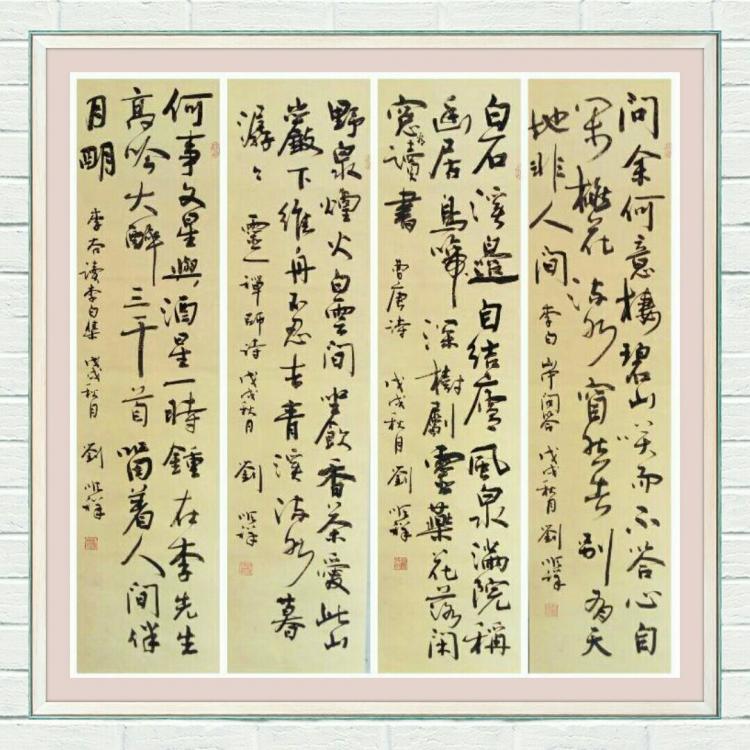 问余何意棲碧山笑而不答心自
闲桃花流水窅然去别有天
地非人间 李白山中问答 戊戌秋月 劉祥
白石溪邊自结廬風泉滿院稱
幽居鳥啼深樹劚靈藥花落闲
窓读書 曹唐诗 戊戌秋月 劉祥
野泉煙火白雲间坐飲香茶愛此山
巖下維舟不忍去青溪流水暮
潺潺 靈一禪師诗 戊戌秋月 劉祥
何事文星與酒星一時鍾在李先生
高吟大醉三千首留着人间伴
月明 读李白集 戊戌秋月 劉祥